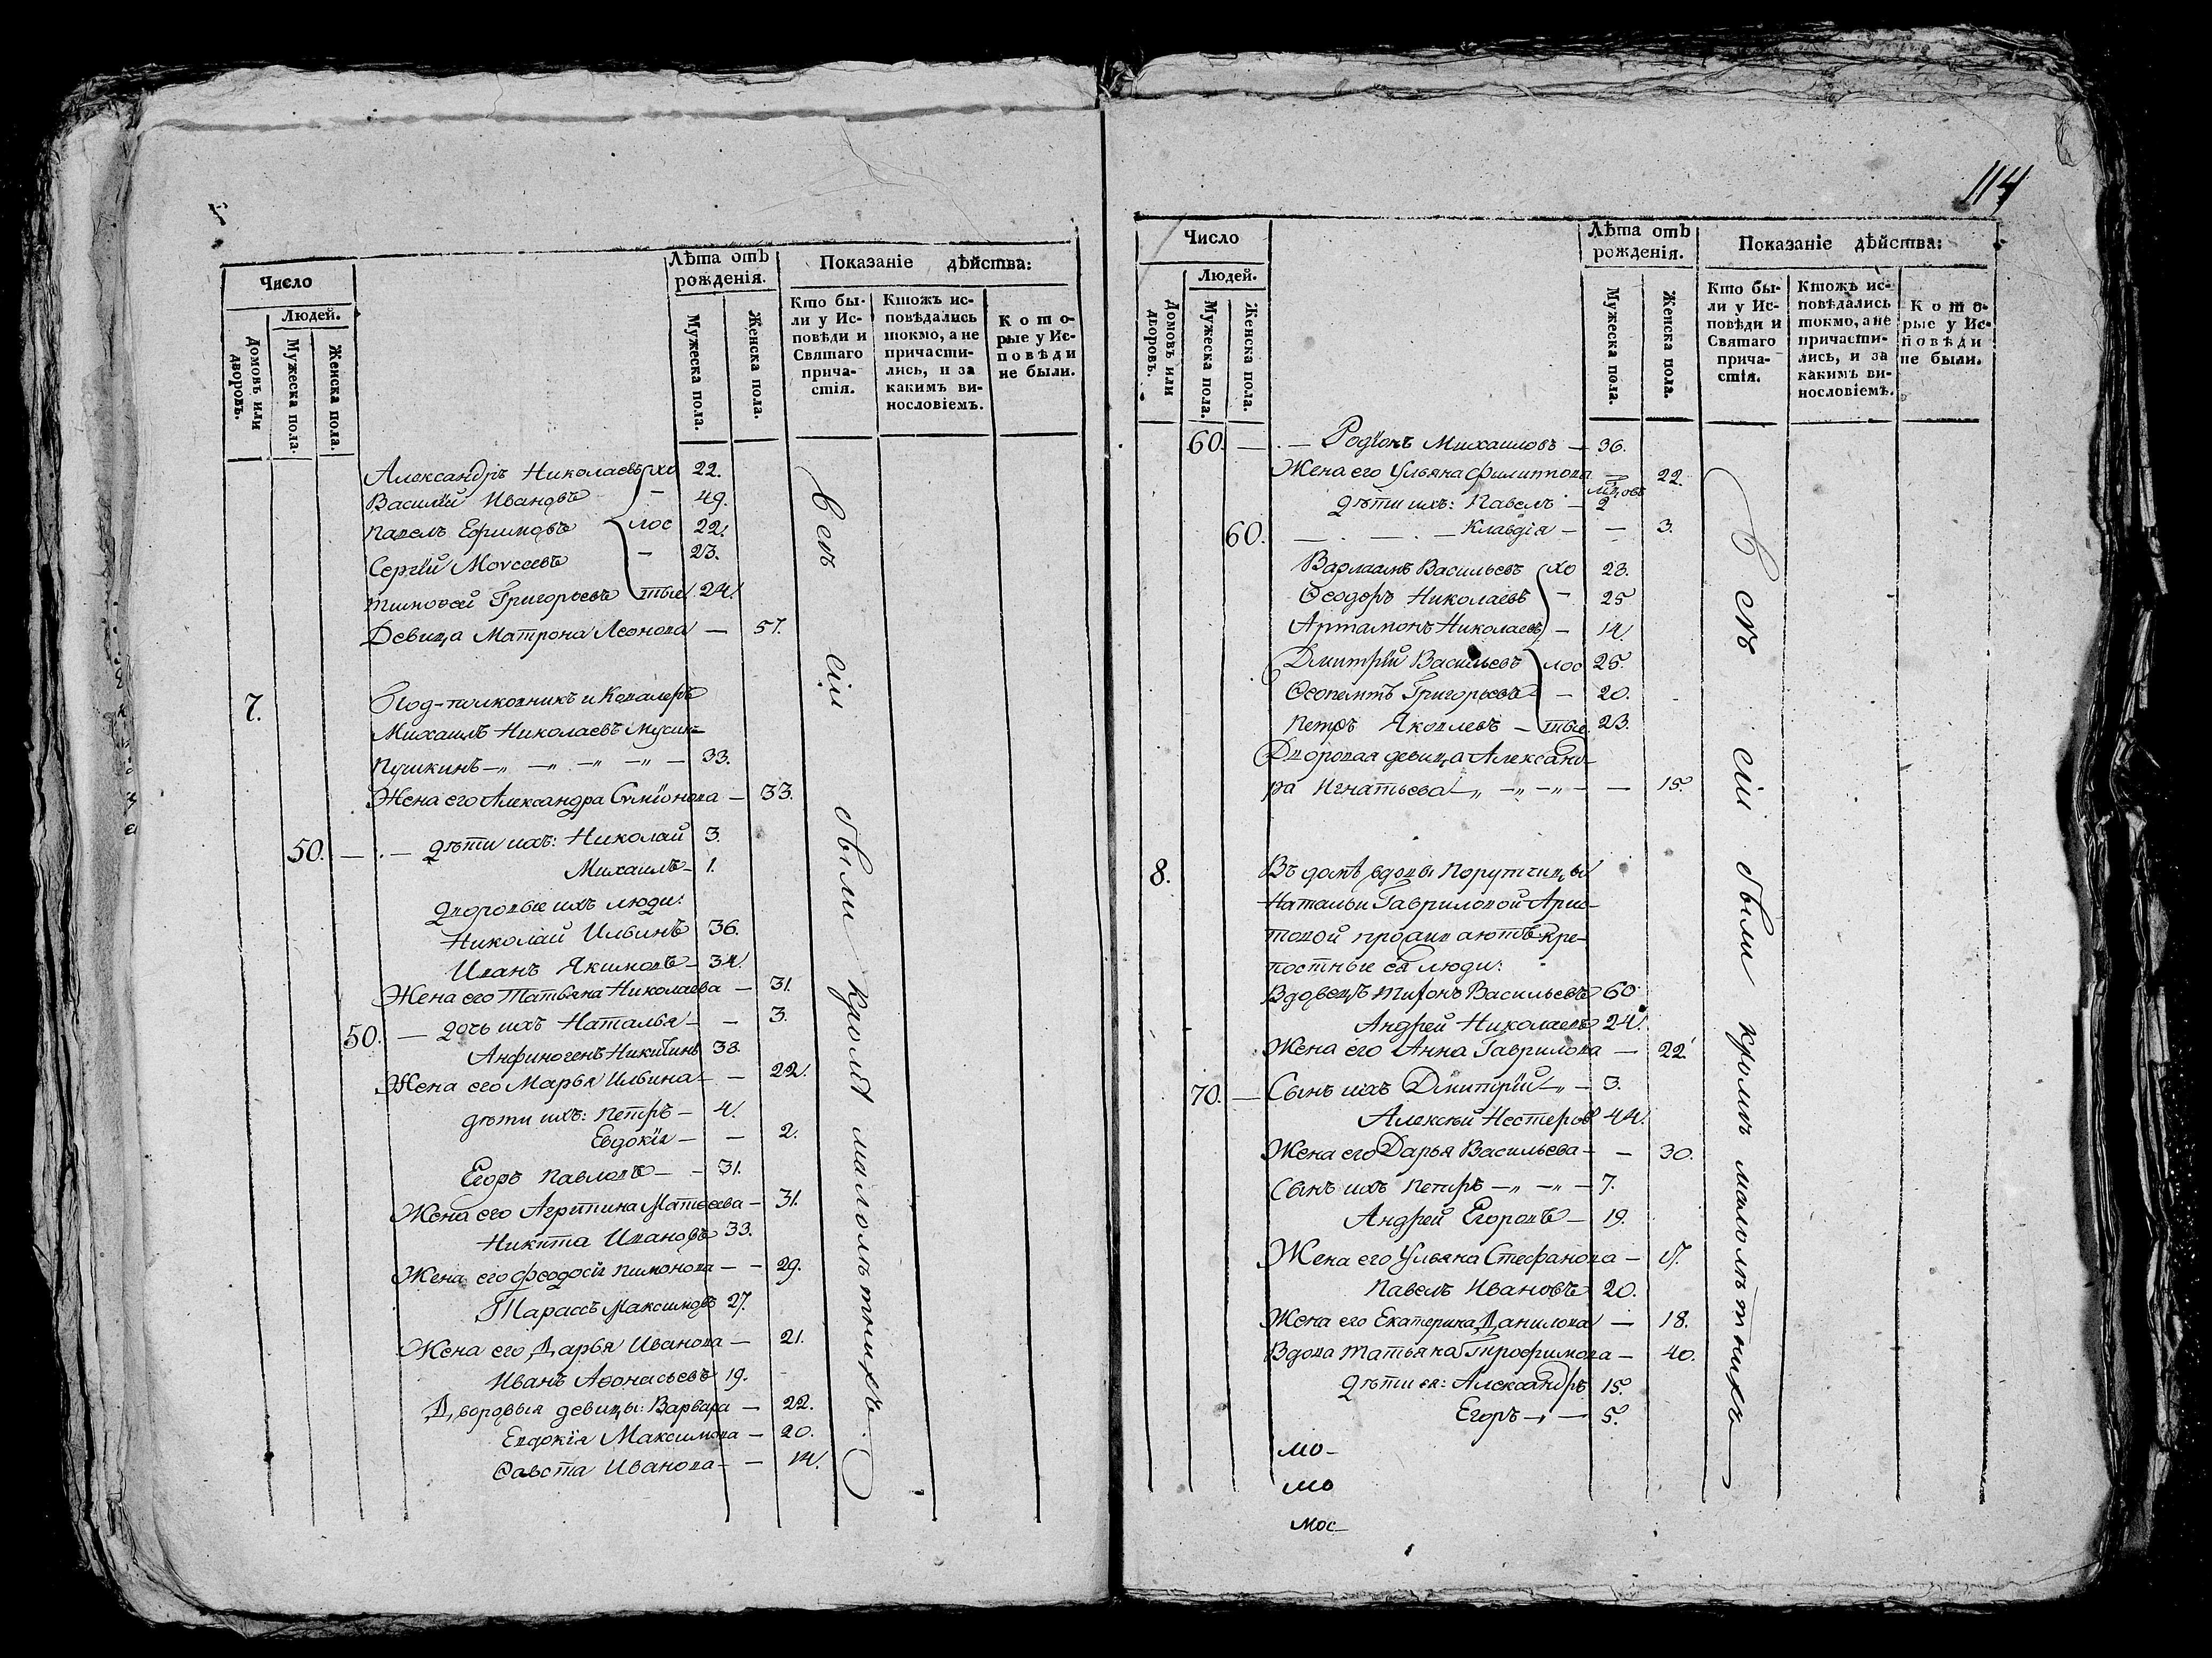 Число
Людей.
Домовъ или дворовъ.
Мужеска пола.
Женска пола.
Лѣта отъ рожденія.
Мужеска пола.
Женска пола.
Показаніе дѣйства:
Кто бы-
ли у Ис-
повѣди и
Святаго
прича-
стія.
Ктожъ ис-
повѣдались
токмо, а не
причасти-
лись, и за
какимъ ви-
нословіемъ.
К о т о-
рые у Ис-
п о в ѣ д и
не были.
Александръ Николаевъ хо 22.
Василій Ивановъ - 49.
Павелъ Ефимовъ лос 22.
Сергѣй Моѵсеевъ - 23.
Тимофей Григорьевъ тые 24.
Девица Матрона Леонова — 57.
7. Под-полковникъ и Кавалеръ
Михаилъ Николаевъ Мусинъ-
Пушкинъ —„ —„ —„ —„ — 33.
Жена его Александра Симіонова — 33.
50. — . — дѣти ихъ: Николай 3.
Михаилъ — 1.
Дворовые ихъ люди:
Николай Ильинъ 36.
Иванъ Якимовъ — 34.
Жена его Татьяна Николаева — 31.
50. — дочь ихъ Наталья — — 3.
Анфиногенъ Никитинъ 38.
Жена его Марья Ильина — — 22.
дѣти ихъ: Петръ — 4.
Евдокія — — 2.
Егоръ Павловъ — - 31.
Жена его Агрипина Матѳеева — 31.
Никита Ивановъ 33.
Жена его Феодосія Пимонова — - 29.
Тарассъ Максимовъ 27.
Жена его Дарья Иванова — 21.
Иванъ Аѳонасьевъ 19.
Дворовыя девицы: Варвара — 22.
Евдокія Максимова — 20.
Ѳавста Иванова — — 14.
Всѣ сіи были кромѣ малолѣтнихъ.
114
Число
Людей.
Домовъ или дворовъ.
Мужеска пола.
Женска пола.
Лѣта отъ рожденія.
Мужеска пола.
Женска пола.
Показаніе дѣйства:
Кто бы-
ли у Ис-
повѣди и
Святаго
прича-
стія.
Ктожъ ис-
повѣдались
токмо, а не
причасти-
лись, и за
какимъ ви-
нословіемъ.
К о т о-
рые у Ис-
п о в ѣ д и
не были.
60. — . — Родіонъ Михаиловъ — 36.
Жена его Ульяна Филипова — 22.
дѣти ихъ: Павелъ - 2
60. — . — . — Клавдія — — 3.
Варлаамъ Васильевъ хо 28.
Ѳеодоръ Николаевъ - 25
Артамонъ Николаевъ — 14.
Дмитрій Васильевъ лос 25.
Ѳеопемптъ Григорьевъ - 20.
Петръ Яковлевъ — тые 23.
Дворовая девица Александ-
ра Игнатьева —„ —„ —„ — — 15.
8. Въ домѣ вдовы Порутчицы
Натальи Гавриловой Арис-
товой проживаютъ кре-
постные ея люди:
Вдовецъ Тихонъ Васильевъ 60
Андрей Николаевъ 24.
Жена его Анна Гаврилова — 22
70. — Сынъ ихъ Дмитрій —„ — 3.
Алексѣй Нестеровъ 44.
Жена его Дарья Васильева — — 30.
Сынъ ихъ Петръ —„ —„ — 7.
Андрей Егоровъ — 19.
Жена его Ульяна Стефанова — 17.
Павелъ Ивановъ 20.
Жена его Екатерина Данилова — 18.
Вдова Татьяна Трофимова — 40.
дѣти ея: Александръ 15.
Егоръ —„ — 5.
мо-
мо
мос-
Всѣ сіи были кромѣ малолѣтнихъ